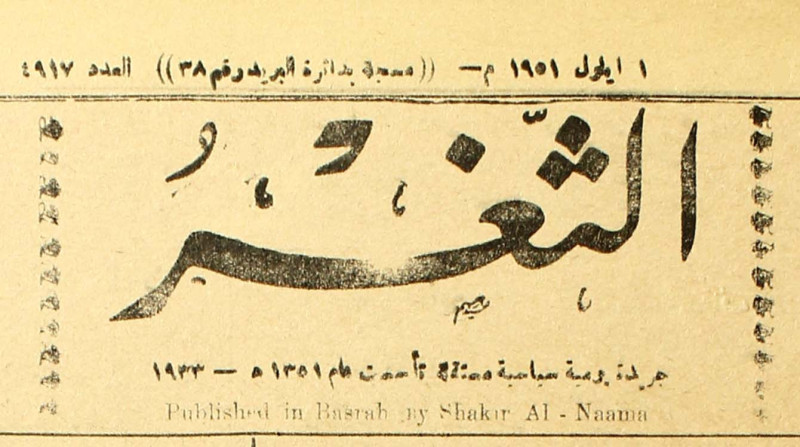 ١ ايلول ١٩٥١ م— ((مسجلة بدائرة البريد رقم ٣٨)) العدد ٤٩١٧
الثَّغرُ
جريدة يومية سياسية مستقلة تأسست عام ١٣٥١ ه — ١٩٣٣
Published in Basrah by Shakir Al - Naama